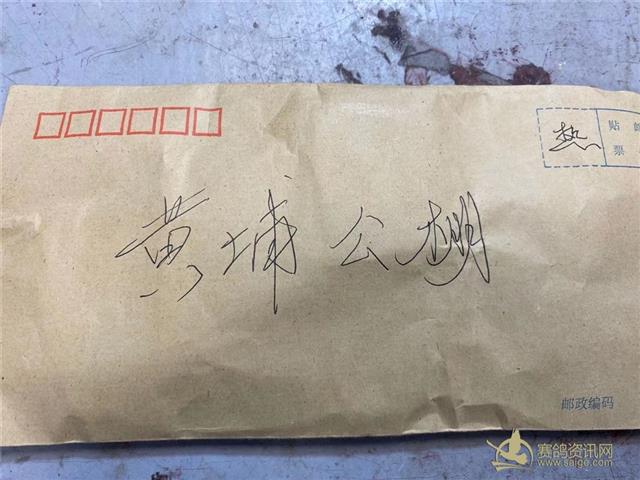 热
贴邮
票
黄埔公棚
邮政编码
赛鸽资讯网
www.saige.com